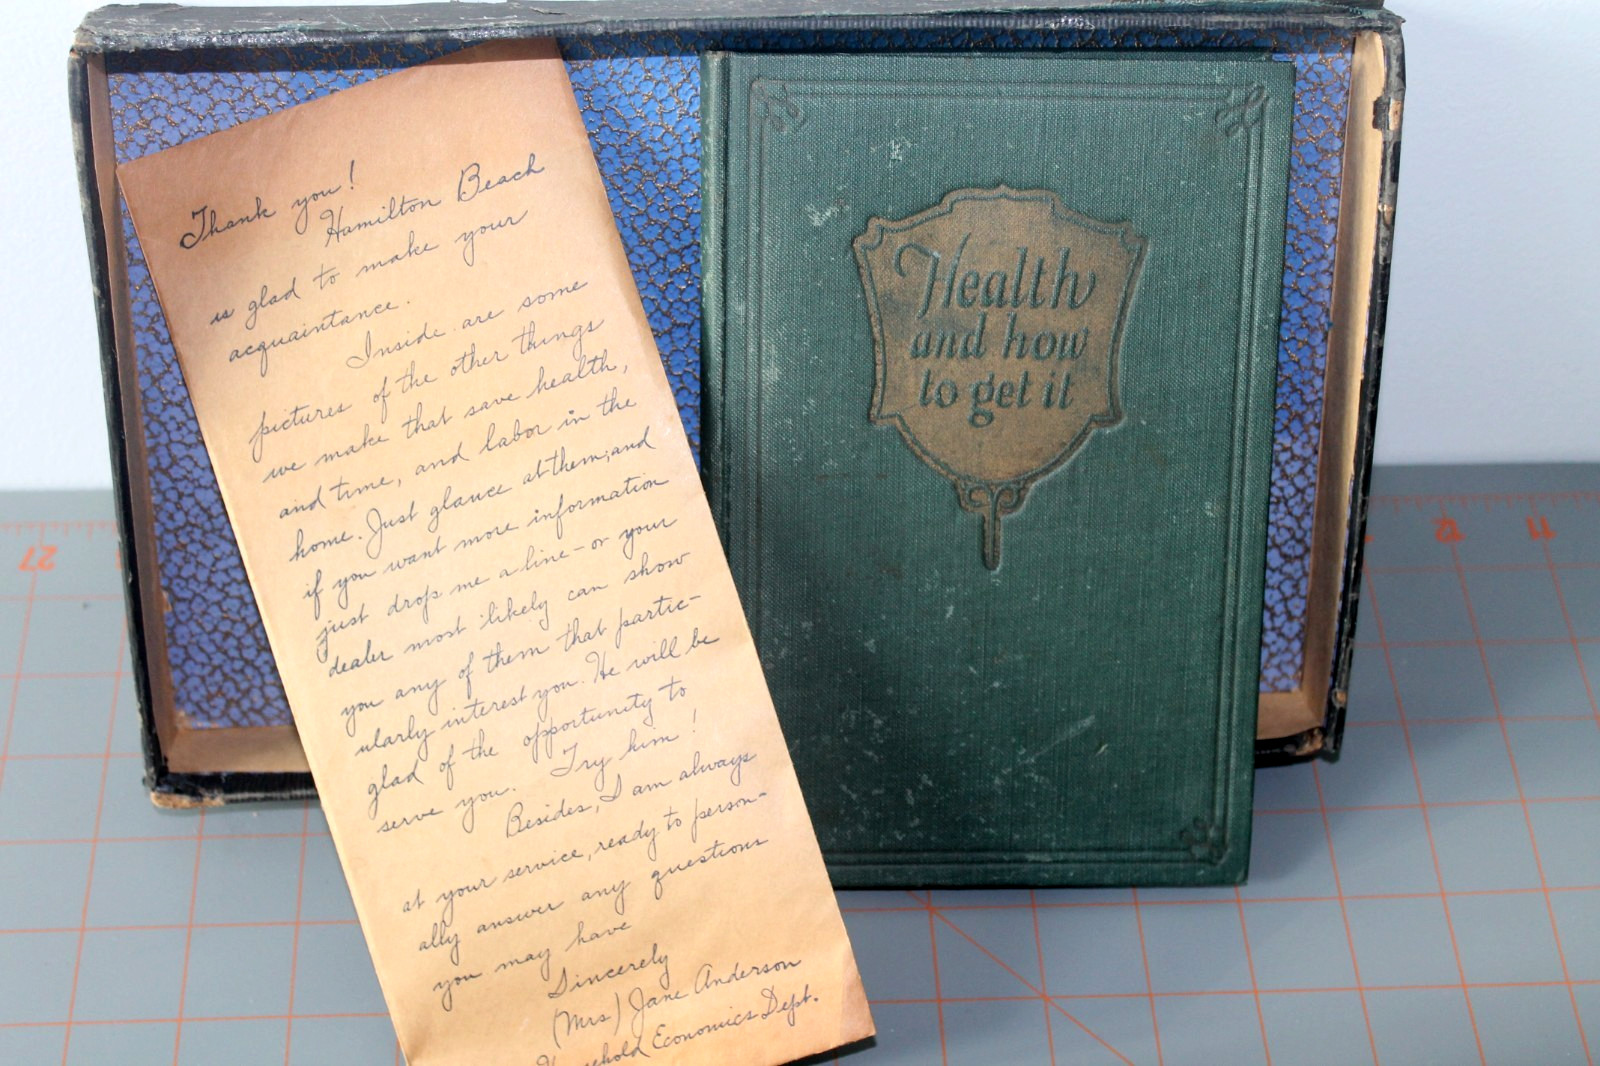 Thank you!
Hamilton Beach
is glad to make your
acquaintance.
Inside are some
pictures of the other things
we make that save health,
and time, and labor in the
home. Just glance at them; and
if you want more information
just drop me a line - or your
dealer most likely can show
you any of them that partic-
ularly interest you. He will be
glad of the opportunity to
serve you. Try him!
Besides, I am always
at your service, ready to person-
ally answer any questions
you may have
Sincerely
(Mrs) Jane Anderson
Household Economics Dept.
Health
and how
to get it
27
12
11